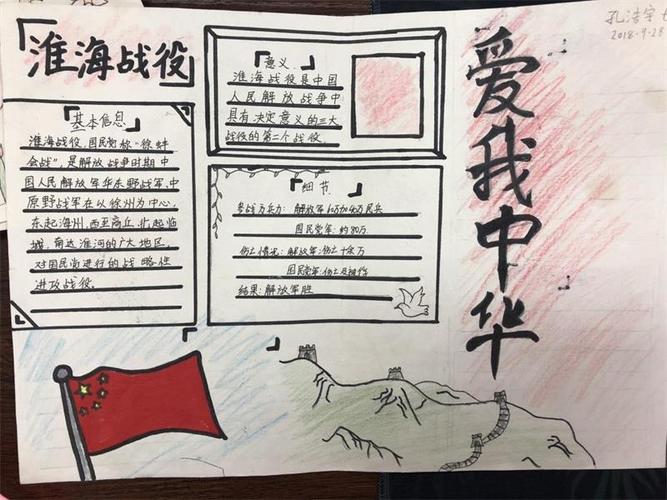 淮海战役
基本信息
淮海战役，国民党称“徐蚌
会战”，是解放战争时期中
国人民解放军华东野战军、中
原野战军在以徐州为中心，
东起海州，西至商丘，北起临
城，南达淮河的广大地区，
对国民党进行的战略性
进攻战役。
意义
淮海战役是中国
人民解放战争中
具有决定意义的三大
战役的第二个战役
细节
参战方兵力：解放军60万加40万民兵
国民党军：约80万
伤亡情况：解放军：伤亡十余万
国民党军：伤亡及被俘
结果：解放军胜
爱我中华
孔浩宇
2018.9.28